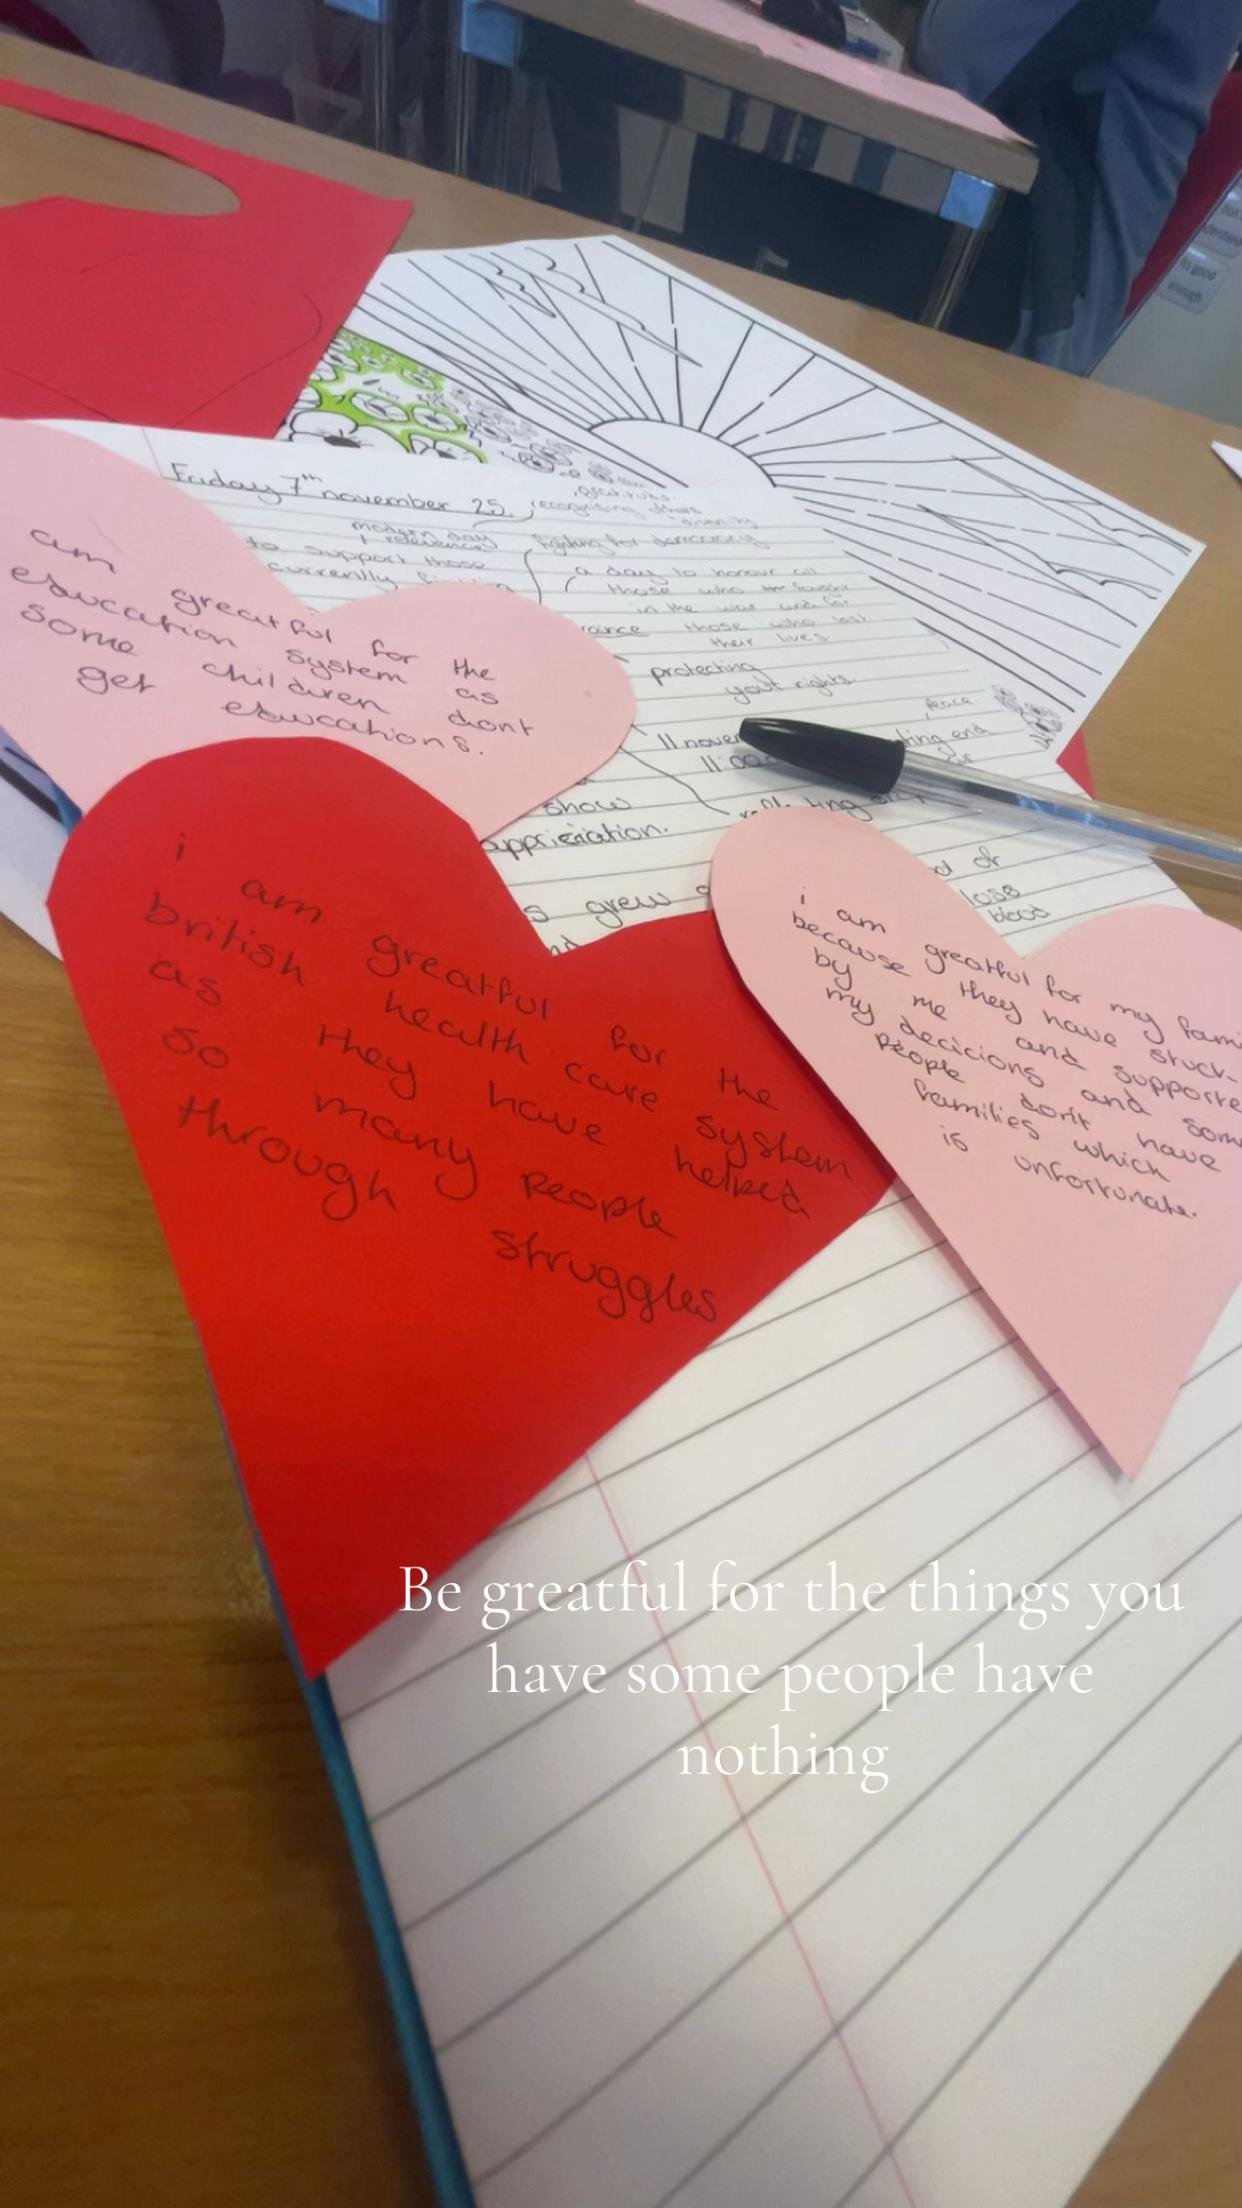 Friday 7th november 25.
recognising others
modern day
relevence
fighting for democracy
to support those
currently
a day to honour all
those who fought
in the war and for
those who lost
their lives
protecting
your rights.
peace
11 nover
ting end
11:00
show
appricication.
s grew
d or
loss
blood
am greatful for the
education system as
some children dont
get educations.
i
am greatful for the
british health care system
as they have helped
so many people
through struggles
i am greatful for my fami
because they have stuck-
by me and supporte
my decicions and som
people don't have
families which
is unfortunate.
its good
enough
Be greatful for the things you
have some people have
nothing